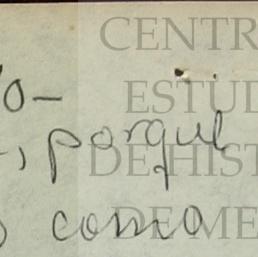 CENTR
o-
ESTUD
, porque
DE HIST
como
DE ME